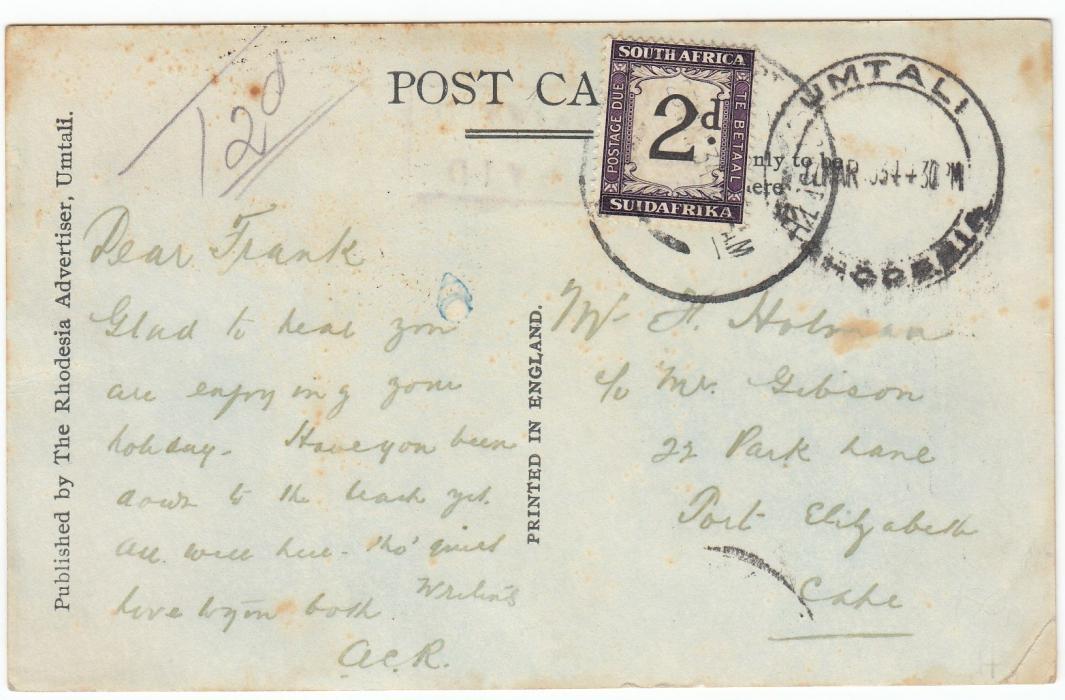 POST CA
SOUTH AFRICA
POSTAGE DUE
2d.
TE BETAAL
SUIDAFRIKA
UMTALI
MAR 34 4 30 PM
RHODESIA
AM
only to be
here
T2d
Published by The Rhodesia Advertiser, Umtali.
PRINTED IN ENGLAND.
Dear Frank
Glad to hear you
are enjoying your
holiday. Have you been
down to the beach yet.
All well here - tho' quiet
love to you both
A.C.R.
Mr F. Holman
c/o Mr. Gibson
22 Park Lane
Port Elizabeth
Cape